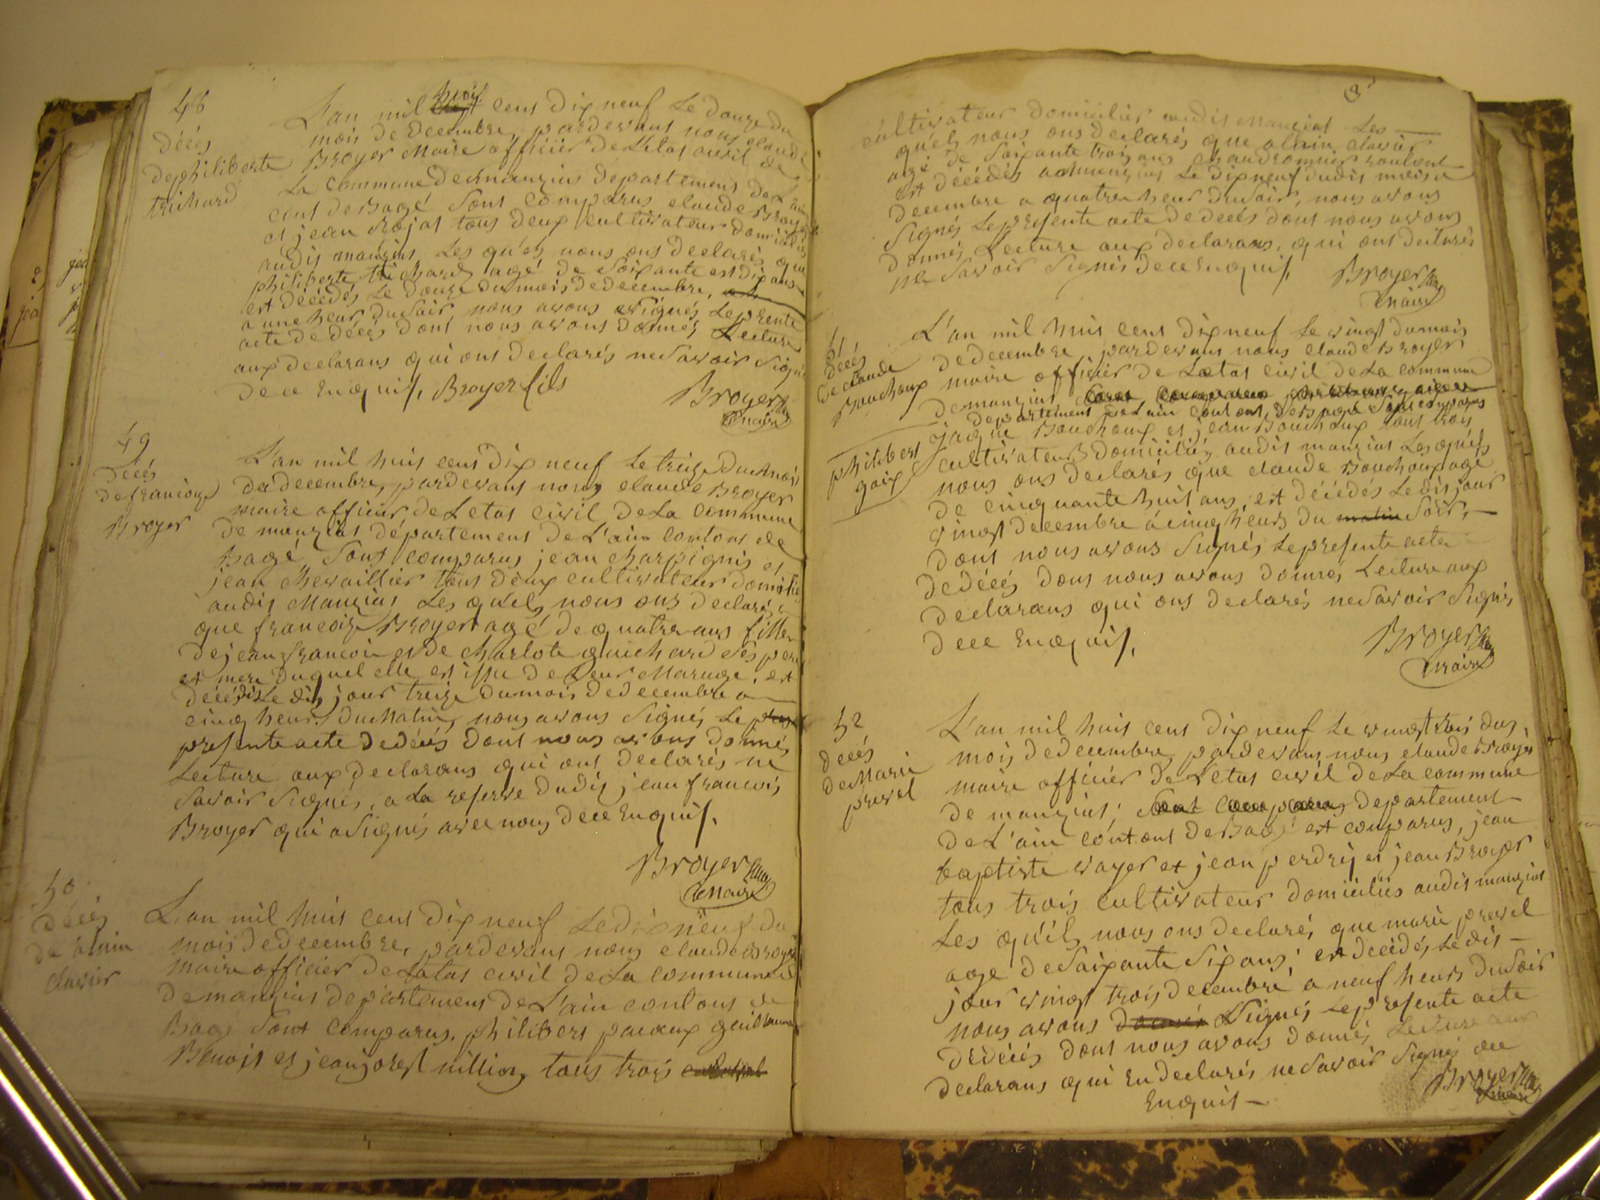 48
Décés
de philiberte
trichard
L'an mil huit cent dix neuf Le douze du
mois de decembre, pardevant nous claude
Broyer Maire officier de Létat civil de
La Commune de manziat departement de L'ain
cont de Bagé Sont comparus claude Broyer
et jean Rojat tous deux cultivateur domicilié
audit manziat Les qu'els nous ont declarés que
philiberte trichard agé de Soixante et dix ans
est décédés Le douze du mois de decembre,
a une heur du Soir, nous avons signés Le présente
acte de décés dont nous avons donnés Lecture
aux declarans qui ont declarés ne Savoir Signé
de ce Enquis, Broyer fils
Broyer
maire
49
Décés
de francoise
Broyer
L'an mil huit cent dix neuf Le treize du mois
de decembre, pardevant nous claude Broyer
maire officier de Létat civil de La commune
de manziat département de L'ain contont de
Bagé, Sont comparus jean charpignis et
jean chevaillier tous deux cultivateur domicilié
audit Manziat Les qu'els nous ont declarés,
que francoise Broyer agé de quatre ans fille
de jean francois et de charlote guichard Ses pere
et mere duquel elle est issue de Leur Mariage, est
décédés Le dit jour treize du mois de decembre a
cinq heurs du Matin, nous avons Signés Le
présente acte de décés dont nous avons donnés
Lecture aux declarans qui ont declarés ne
Savoir Signés, a La reserve dudit jean francois
Broyer qui a Signés avec nous de ce Enquis,
Broyer
maire
50
décés
de alain
clavier
L'an mil huit cent dix neuf Le dix neuf du
mois de decembre, pardevant nous claude Broyer
maire officier de Létat civil de La commune
de manziat departement de L'ain contont de
Bagé Sont comparus, philibert paccaux guillaume
Benoit et jean jorest million, tous trois
cultivateur domicilier audit Manziat Les
quels nous ont declarés que alain clavier
agé de Soixante trois ans
est décédés a manziat Le dix neuf dudit mois de
decembre a quatre heur du soir, nous avons
Signés Le présente acte de décés dont nous avons
donnés Lecture aux declarans, qui ont declarés
ne Savoir Signés de ce Enquis,
Broyer
maire
51
Décés
de claude
Bouchoux
L'an mil huit cent dix neuf Le vingt du mois
de decembre pardevant nous claude Broyer
maire officier de Létat civil de La commune
de manziat
departement de L'ain contont, de Bagé Sont comparus
jaque Bouchoux et jean Bouchoux tous trois
philibert
gaix
cultivateur domicilié, audit manziat Lesquels
nous ont declarés que claude Bouchoux agé
de cinquante huit ans, est décédés Le dit jour
vingt decembre à cinq heurs du Soir,
dont nous avons Signés Le présente acte
de décés dont nous avons donnés Lecture aux
declarans qui ont declarés ne Savoir Signés
de ce Enquis,
Broyer
maire
52
Décés
de Marie
prevel
L'an mil huit cent dix neuf Le vingt trois du
mois de decembre, pardevant nous claude Broyer
maire officier de Létat civil de La commune
de manziat, departement
de L'ain contont de Bagé est comparus, jean
baptiste vayer et jean perdrix et jean Broyer
tous trois cultivateur domiciliés audit manziat
Les qu'els nous ont declarés, que marie prevel
agé de Soixante Six ans, est décédés, Le dit
jour vingt trois decembre, a neuf heurs du Soir
nous avons Signés Le présente acte
de décés dont nous avons donnés Lecture aux
declarans qui En declarés ne Savoir Signés de ce
Enquis
Broyer
maire